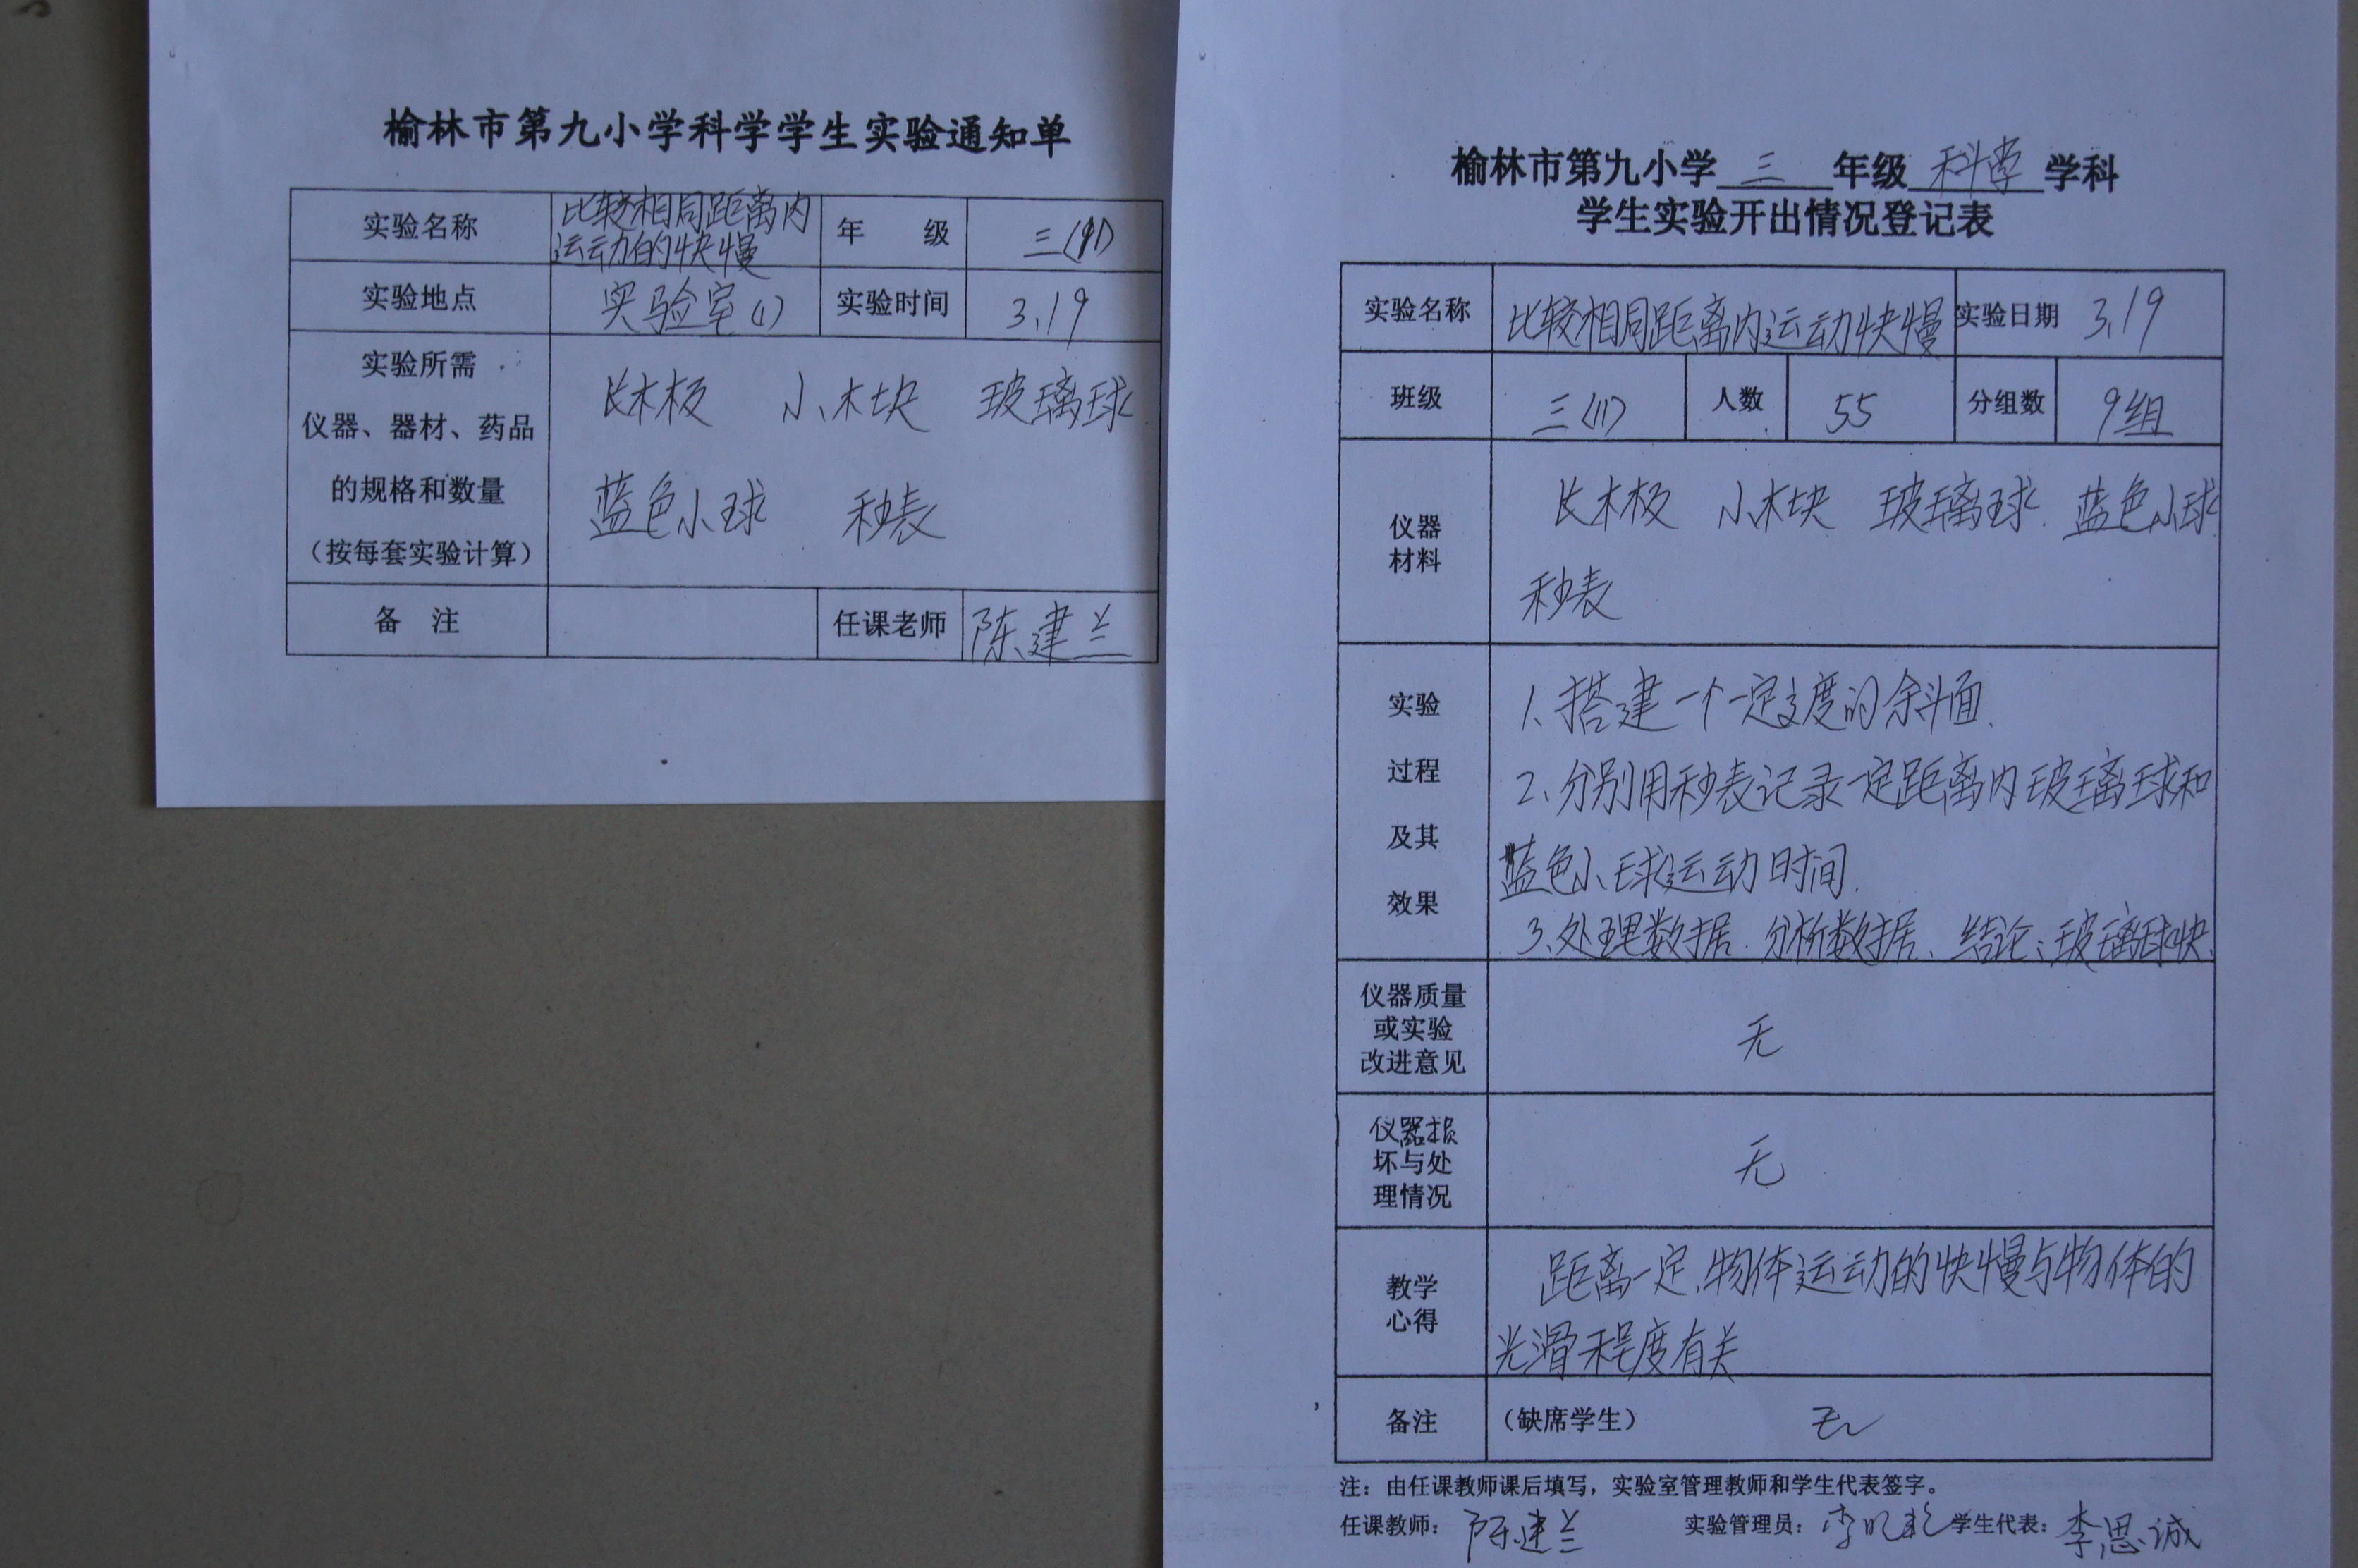 榆林市第九小学科学学生实验通知单
实验名称 比较相同距离内运动的快慢 年 级 三(11)
实验地点 实验室(1) 实验时间 3.19
实验所需
仪器、器材、药品
的规格和数量
(按每套实验计算)
长木板 小木块 玻璃球
蓝色小球 秒表
备 注 任课老师 陈建兰
榆林市第九小学 三 年级 科学 学科
学生实验开出情况登记表
实验名称 比较相同距离内运动快慢 实验日期 3.19
班级 三(11) 人数 55 分组数 9组
仪器
材料
长木板 小木块 玻璃球 蓝色小球
秒表
实验
过程
及其
效果
1、搭建一个一定高度的斜面.
2、分别用秒表记录一定距离内玻璃球和
蓝色小球运动时间.
3、处理数据、分析数据、结论:玻璃球快.
仪器质量
或实验
改进意见
无
仪器损
坏与处
理情况
无
教学
心得
距离一定,物体运动的快慢与物体的
光滑程度有关
备注 (缺席学生) 无
注:由任课教师课后填写,实验室管理教师和学生代表签字。
任课教师: 陈建兰 实验管理员: 学生代表: 李思诚